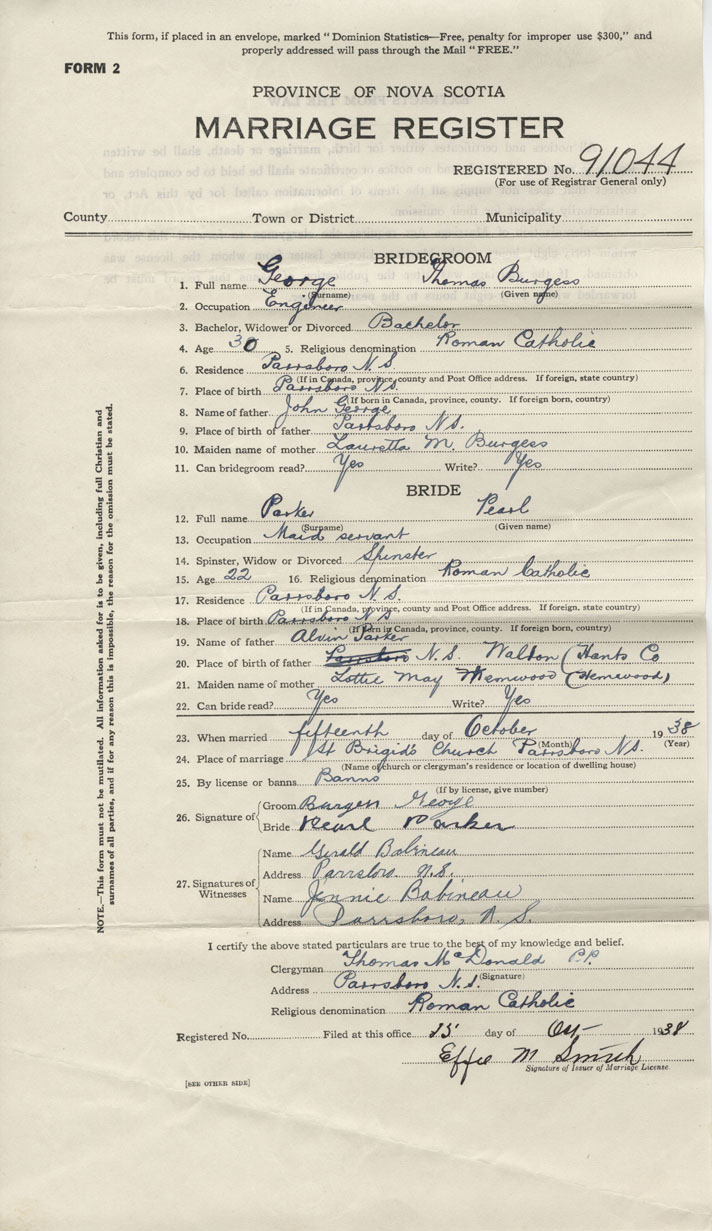 This form, if placed in an envelope, marked "Dominion Statistics—Free, penalty for improper use $300," and
properly addressed will pass through the Mail "FREE."
FORM 2
PROVINCE OF NOVA SCOTIA
MARRIAGE REGISTER
REGISTERED No. 91044
(For use of Registrar General only)
County Town or District Municipality
BRIDEGROOM
1. Full name George Thomas Burgess
(Surname) (Given name)
2. Occupation Engineer
3. Bachelor, Widower or Divorced Bachelor
4. Age 30 5. Religious denomination Roman Catholic
6. Residence Parrsboro N.S.
(If in Canada, province, county and Post Office address. If foreign, state country)
7. Place of birth Parrsboro N.S.
(If born in Canada, province, county. If foreign born, country)
8. Name of father John George
9. Place of birth of father Parrsboro N.S.
10. Maiden name of mother Lauretta M. Burgess
11. Can bridegroom read? Yes Write? Yes
BRIDE
12. Full name Parker Pearl
(Surname) (Given name)
13. Occupation Maid servant
14. Spinster, Widow or Divorced Spinster
15. Age 22 16. Religious denomination Roman Catholic
17. Residence Parrsboro N.S.
(If in Canada, province, county and Post Office address. If foreign, state country)
18. Place of birth Parrsboro N S
(If born in Canada, province, county. If foreign born, country)
19. Name of father Alvin Parker
20. Place of birth of father Parrsboro N.S. Walton (Hants Co
21. Maiden name of mother Lottie May (Hemwood)
22. Can bride read? Yes Write? Yes
23. When married fifteenth day of October 19 38
(Month) (Year)
24. Place of marriage St Brigid's Church Parrsboro N.S.
(Name of church or clergyman's residence or location of dwelling house)
25. By license or banns Banns
(If by license, give number)
26. Signature of Groom Burgess George
Bride Pearl Parker
27. Signatures of Witnesses Name Gerald Babineau
Address Parrsboro N.S.
Name Jennie Babineau
Address Parrsboro, N.S.
I certify the above stated particulars are true to the best of my knowledge and belief.
Clergyman Thomas McDonald P.P.
(Signature)
Address Parrsboro N.S.
Religious denomination Roman Catholic
Registered No. Filed at this office 25 day of Oct 1938
Effie M Smith
Signature of Issuer of Marriage License
[SEE OTHER SIDE]
NOTE.—This form must not be mutilated. All information asked for is to be given, including full Christian and
surnames of all parties, and if for any reason this is impossible, the reason for the omission must be stated.